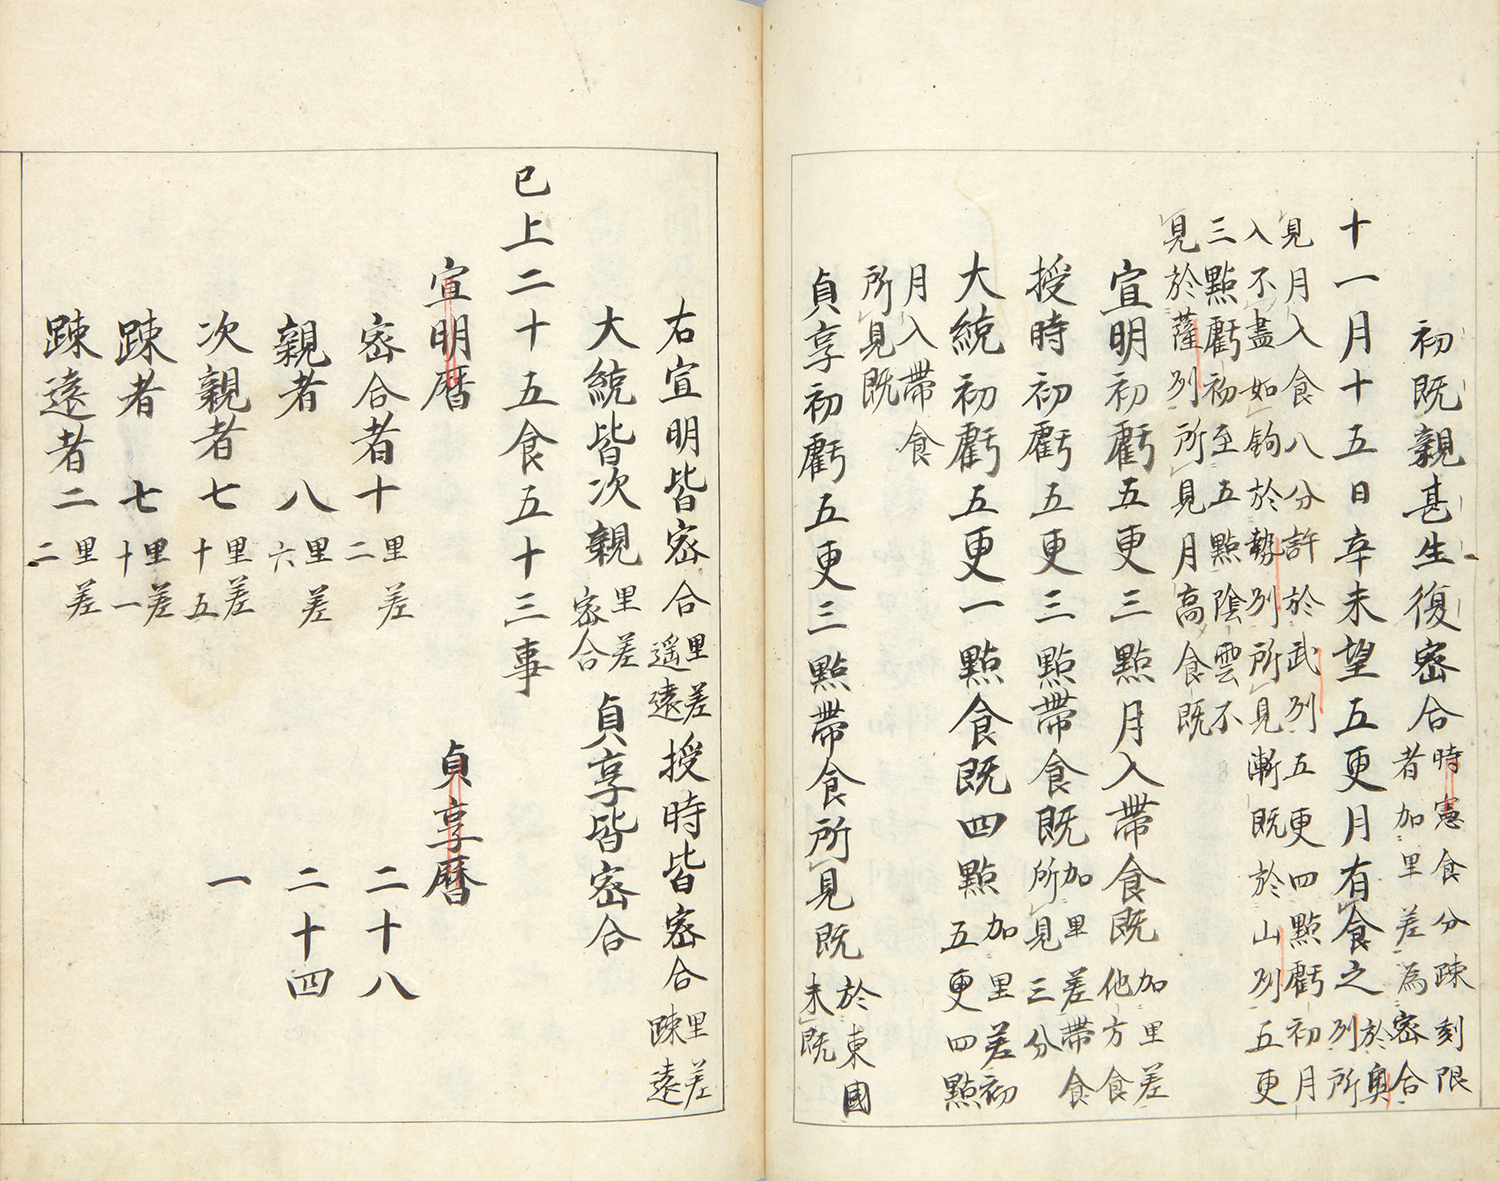 初既親甚生復密合時憲食分疎刻限
者加里差為密合
十一月十五日辛未望五更月有食之於奥
列所
見月入食八分許於武列五更四點虧初月
入不盡如鉤於勢列所見漸既於山列五更
三點虧初至五點陰雲不
見於薩列所見月高食既
宣明初虧五更三點月入帶食既加里差
他方食
授時初虧五更三點帶食既加里差帶食
所見三分
大統初虧五更一點食既四點加里差初
五更四點
月入帶食
所見既
貞享初虧五更三點帶食所見既於東國
未既
右宣明皆密合里差遥遠授時皆密合里差疎遠
大統皆次親里差密合貞享皆密合
已上二十五食五十三事
宣明暦 貞享暦
密合者十里差二 二十八
親者 八里差六 二十四
次親者七里差十五 一
疎者 七里差十一
疎遠者二里差二